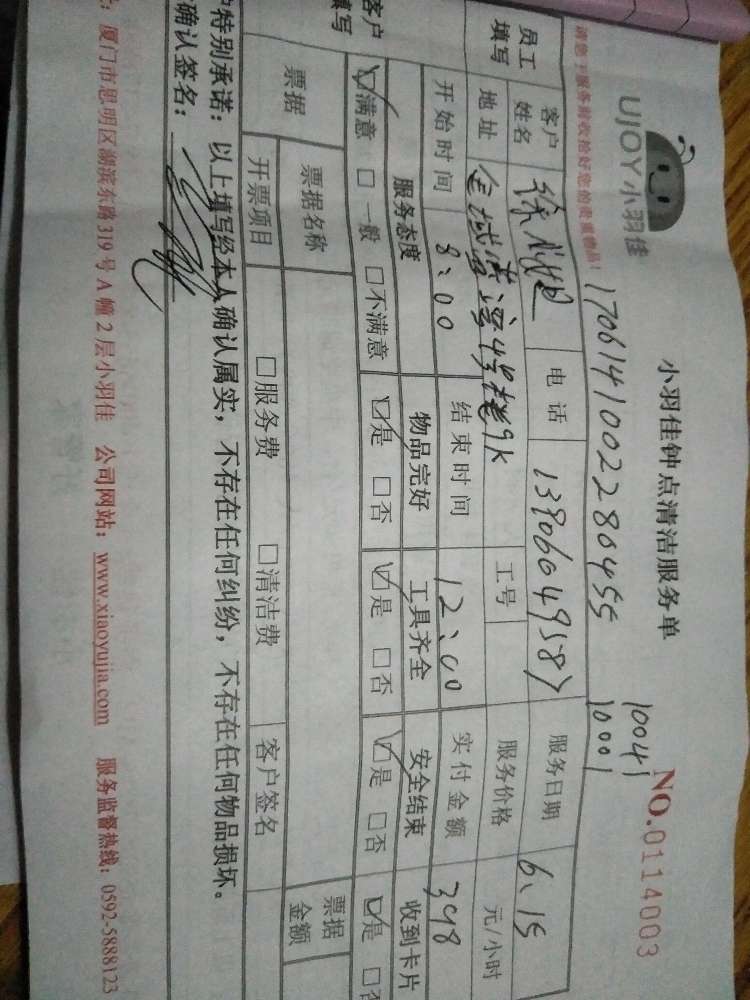 UJOY小羽佳
小羽佳钟点清洁服务单
NO.0114003
10041
10001
1706141002280455
员工填写
客户姓名 徐 电话 服务日期 6、15
地址 4号楼9K 工号 服务价格 元/小时
开始时间 8:00 结束时间 12:00 实付金额 398
客户填写
服务态度 物品完好 工具齐全 安全结束 收到卡片
☑满意 □一般 □不满意 ☑是 □否 ☑是 □否 ☑是 □否 ☑是 □否
票据 票据名称 票据金额
开票项目 □服务费 □清洁费 客户签名
特别承诺:以上填写经本人确认属实,不存在任何纠纷,不存在任何物品损坏。
确认签名:
厦门市思明区湖滨东路319号A幢2层小羽佳 公司网站:www.xiaoyujia.com 服务监督热线:0592-5888123